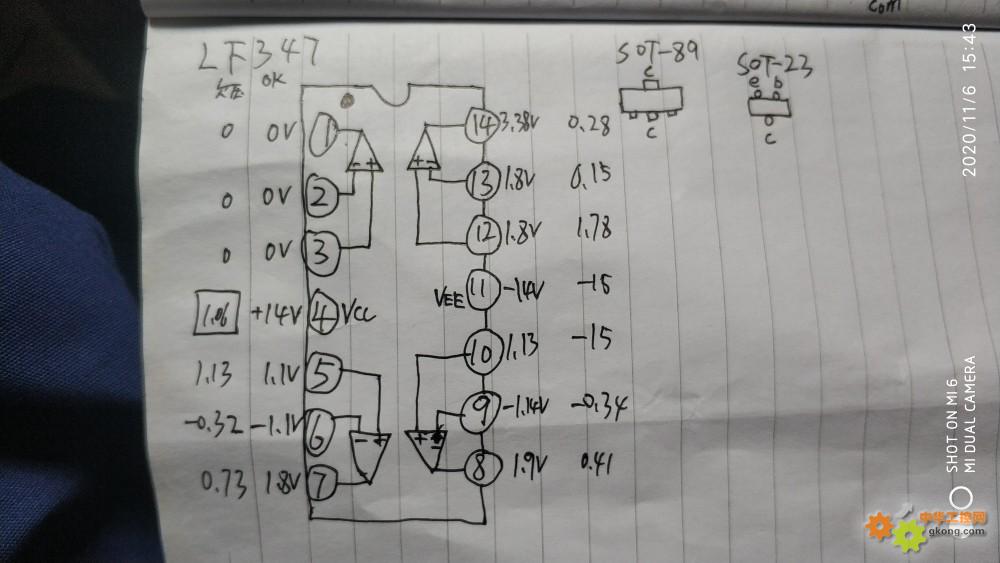 com
LF347
SOT-89
SOT-23
欠压 OK
C
C
e b
C
0 0V 1 14 3.38V 0.28
- + + -
0 0V 2 13 1.8V 0.15
0 0V 3 12 1.8V 1.78
1.06 +14V 4 VCC VEE 11 -14V -15
1.13 1.1V 5 10 1.13 -15
-0.32 -1.1V 6 9 -1.14V -0.34
- + + -
0.73 1.8V 7 8 1.9V 0.41
2020/11/6 15:43
SHOT ON MI 6
MI DUAL CAMERA
中华工控网
gkong.com